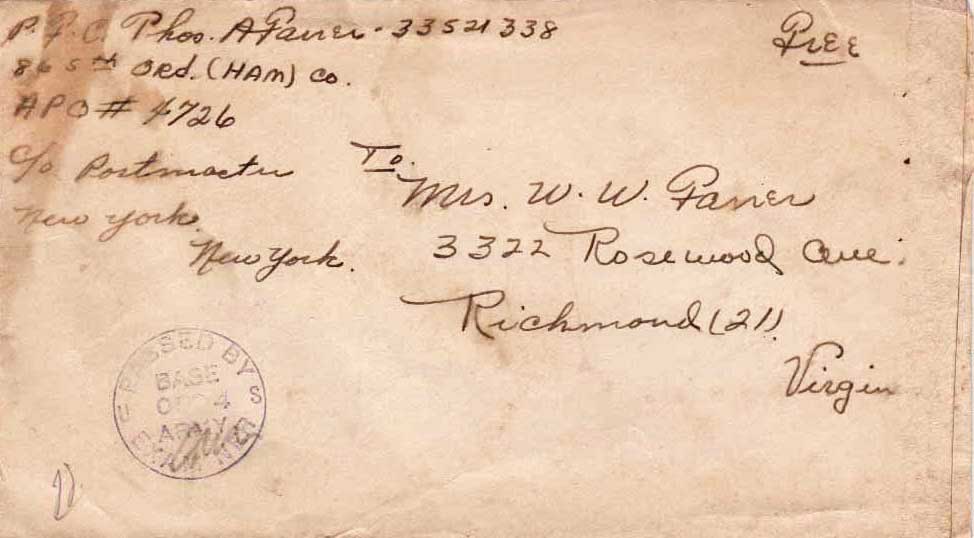 P.F.C. Thos. A Farrer - 33521338
865th Ord. (HAM) Co.
APO # 4726
c/o Postmaster
New York.
New York.
Free
To.
Mrs. W. W. Farrer
3322 Rosewood Ave.
Richmond (21)
Virgin
PASSED BY
BASE
ARMY
U S
EXAMINER